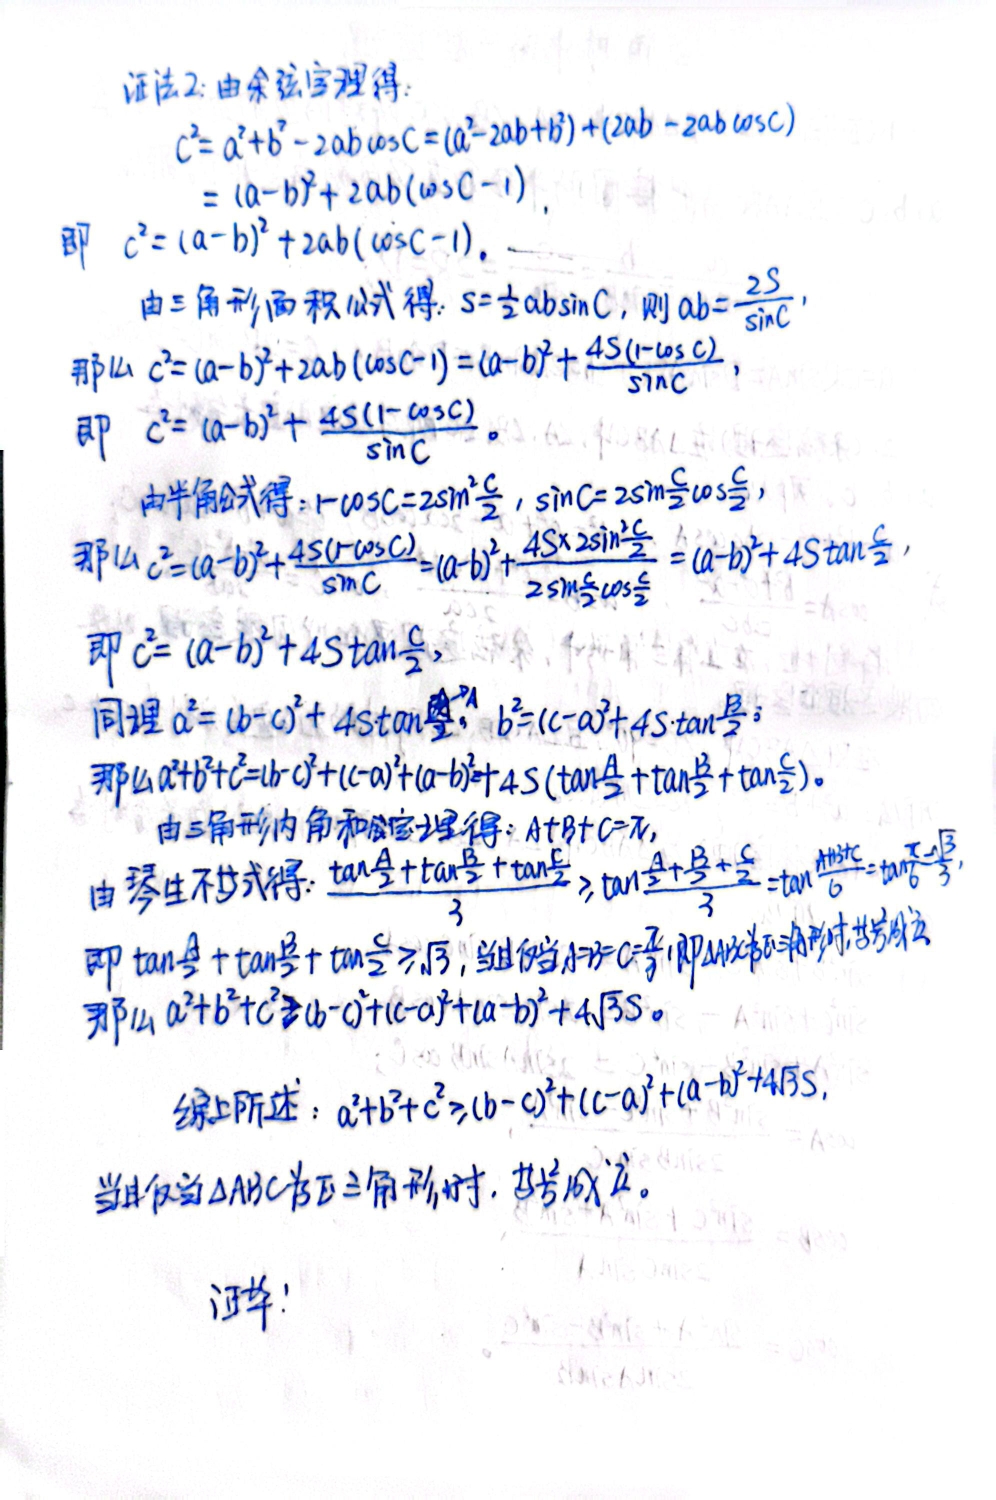 证法2:由余弦定理得:
c²=a²+b²-2abcosC=(a²-2ab+b²)+(2ab-2abcosC)
=(a-b)²+2ab(cosC-1),
即 c²=(a-b)²+2ab(cosC-1)。
由三角形面积公式得:S=½absinC,则ab=2S/sinC,
那么 c²=(a-b)²+2ab(cosC-1)=(a-b)²+4S(1-cosC)/sinC,
即 c²=(a-b)²+4S(1-cosC)/sinC。
由半角公式得:1-cosC=2sin²C/2,sinC=2sinC/2cosC/2,
那么c²=(a-b)²+4S(1-cosC)/sinC=(a-b)²+4S×2sin²C/2/2sinC/2cosC/2=(a-b)²+4StanC/2,
即c²=(a-b)²+4StanC/2,
同理a²=(b-c)²+4Stan b²=(c-a)²+4S·tanB/2;
那么a²+b²+c²=(b-c)²+(c-a)²+(a-b)²+4S(tanA/2+tanB/2+tanC/2)。
由三角形内角和定理得:A+B+C=π,
由琴生不等式得:tanA/2+tanB/2+tanC/2/3≥tanA/2+B/2+C/2/3=tanA+B+C/6=tanπ/6=√3/3,
即tanA/2+tanB/2+tanC/2≥√3,当且仅当A=B=C=π/3,即△ABC为正三角形时,等号成立
那么a²+b²+c²≥(b-c)²+(c-a)²+(a-b)²+4√3S。
综上所述:a²+b²+c²≥(b-c)²+(c-a)²+(a-b)²+4√3S,
当且仅当△ABC为正三角形时,等号成立。
证毕!